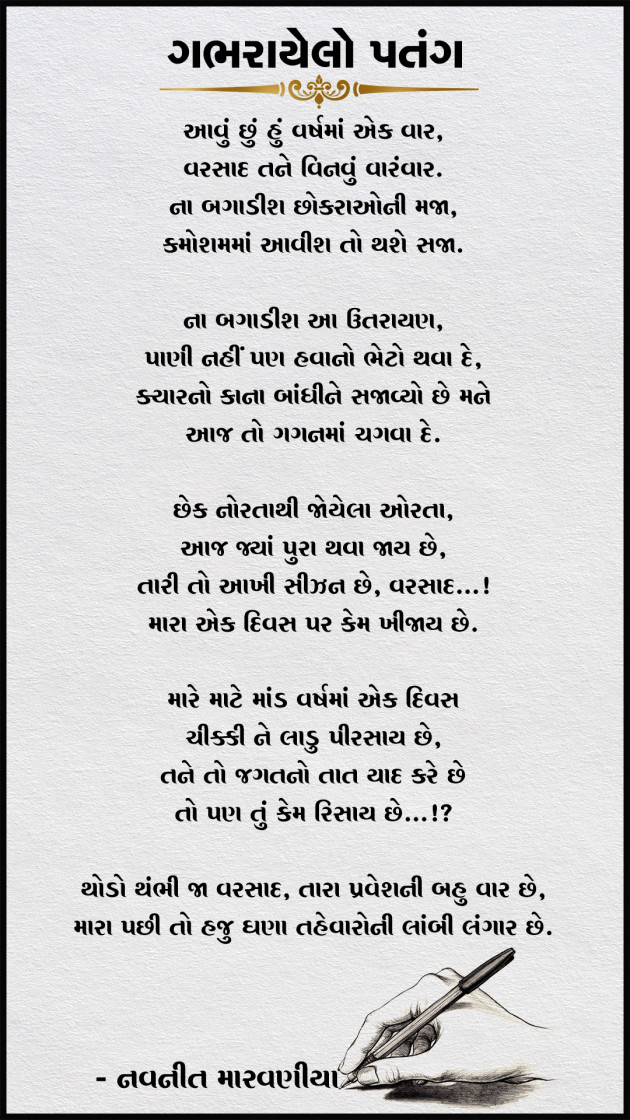 ગભરાયેલો પતંગ
આવું છું હું વર્ષમાં એક વાર,
વરસાદ તને વિનવું વારંવાર.
ના બગાડીશ છોકરાઓની મજા,
કમોશમમાં આવીશ તો થશે સજા.
ના બગાડીશ આ ઉતરાયણ,
પાણી નહીં પણ હવાનો ભેટો થવા દે,
ક્યારનો કાના બાંધીને સજાવ્યો છે મને
આજ તો ગગનમાં ચગવા દે.
છેક નોરતાથી જોયેલા ઓરતા,
આજ જ્યાં પુરા થવા જાય છે,
તારી તો આખી સીઝન છે, વરસાદ...!
મારા એક દિવસ પર કેમ ખીજાય છે.
મારે માટે માંડ વર્ષમાં એક દિવસ
ચીક્કી ને લાડુ પીરસાય છે,
તને તો જગતનો તાત યાદ કરે છે
તો પણ તું કેમ રિસાય છે...!?
થોડો થંભી જા વરસાદ, તારા પ્રવેશની બહુ વાર છે,
મારા પછી તો હજુ ઘણા તહેવારોની લાંબી લંગાર છે.
- નવનીત મારવણીયા